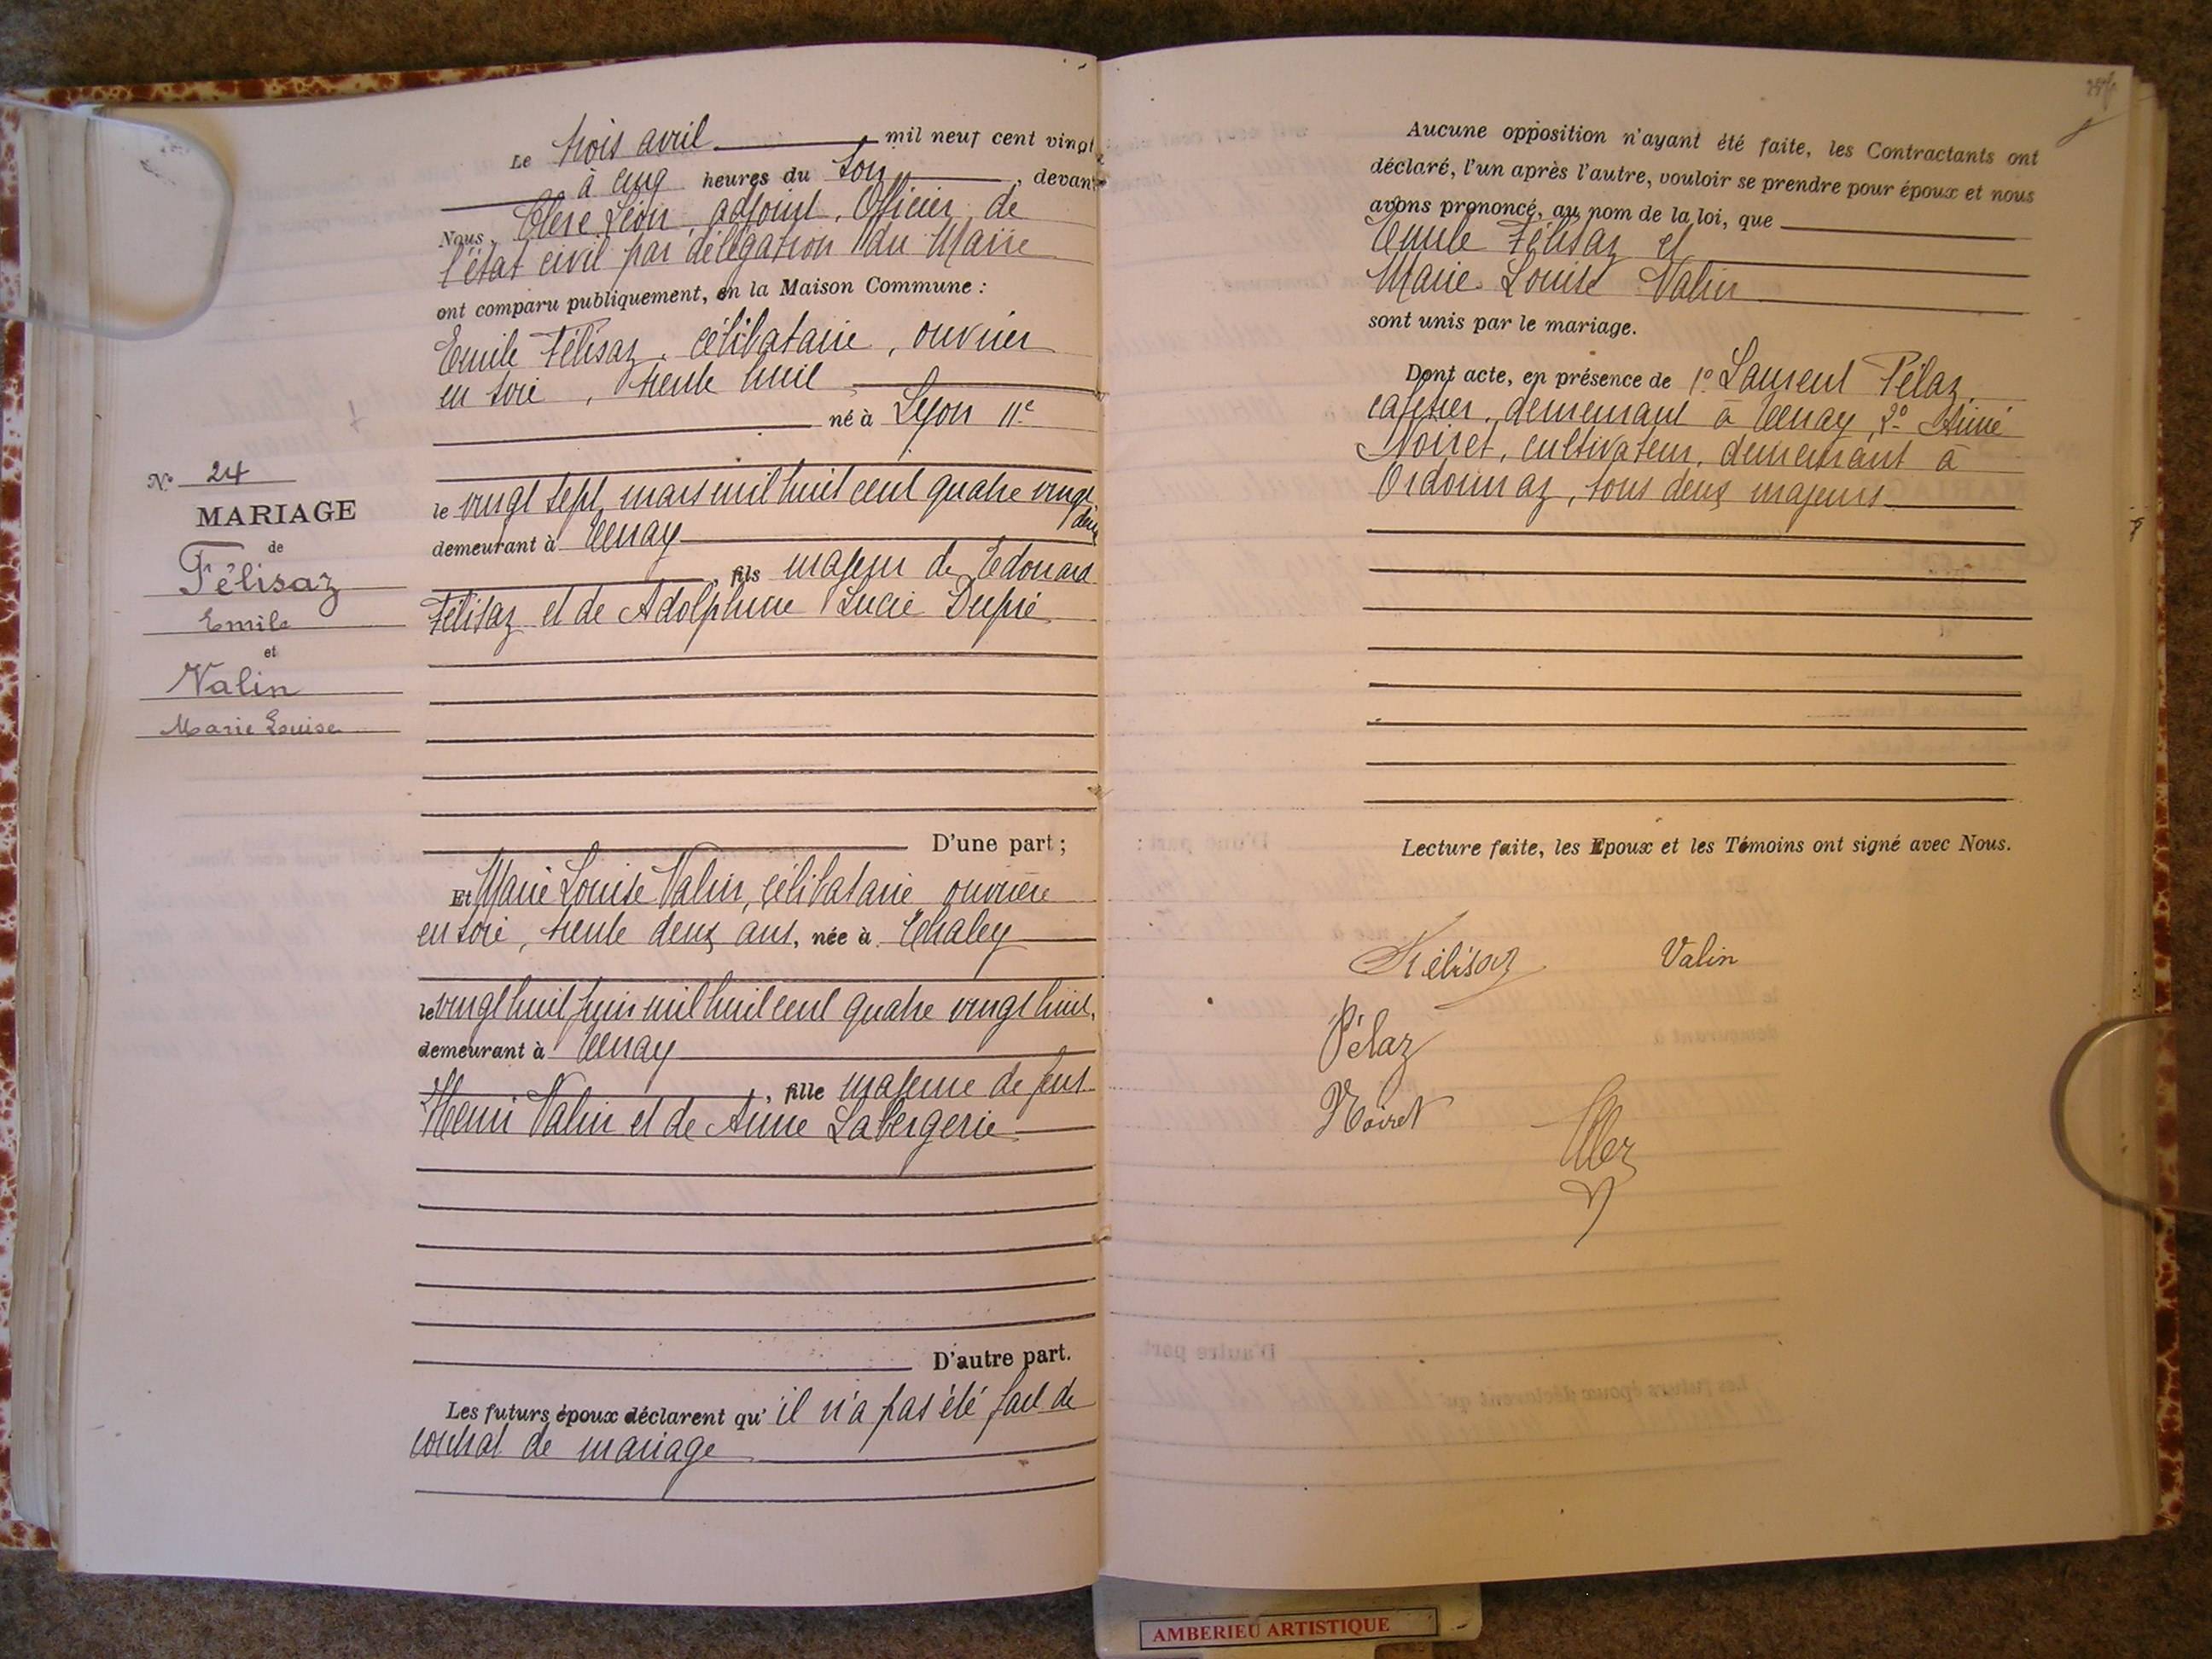 Le trois avril mil neuf cent vingt
à cinq heures du soir, devant
Nous, Léon, adjoint, Officier de
l'état civil par délégation du Maire
ont comparu publiquement, en la Maison Commune :
Emile Félisaz, célibataire, ouvrier
en soie, trente huit
né à Lyon
le vingt sept mars mil huit cent quatre vingt
deux
demeurant à Tenay
, fils majeur de Edouard
Félisaz et de Adolphine Lucie Dupré
D'une part ;
Et Marie Louise Valin, célibataire ouvrière
en soie, trente deux ans, née à Chaley
le vingt huit juin mil huit cent quatre vingt huit,
demeurant à Tenay
, fille majeure de feus
Henri Valin et de Anne Labergerie
D'autre part.
Les futurs époux déclarent qu'il n'a pas été fait de
contrat de mariage
N° 24
MARIAGE
de
Félisaz
Emile
et
Valin
Marie Louise
Aucune opposition n'ayant été faite, les Contractants ont
déclaré, l'un après l'autre, vouloir se prendre pour époux et nous
avons prononcé, au nom de la loi, que
Emile Félisaz et
Marie Louise Valin
sont unis par le mariage.
Dont acte, en présence de 1° Laurent Pélaz,
cafetier, demeurant à Tenay, 2° Aimé
Noiret, cultivateur, demeurant à
Ordonnaz, tous deux majeurs
Lecture faite, les Epoux et les Témoins ont signé avec Nous.
Félisaz Valin
Pélaz
Noiret
AMBERIEU ARTISTIQUE